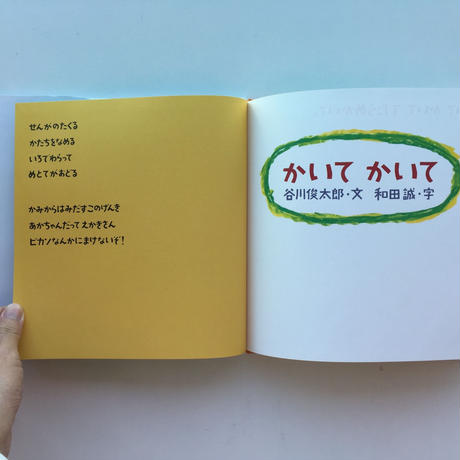 せんがのたくる
かたちをなめる
いろでわらって
めとてがおどる
かみからはみだすこのげんき
あかちゃんだってえかきさん
ピカソなんかにまけないぞ!
かいて かいて
谷川俊太郎・文 和田誠・字